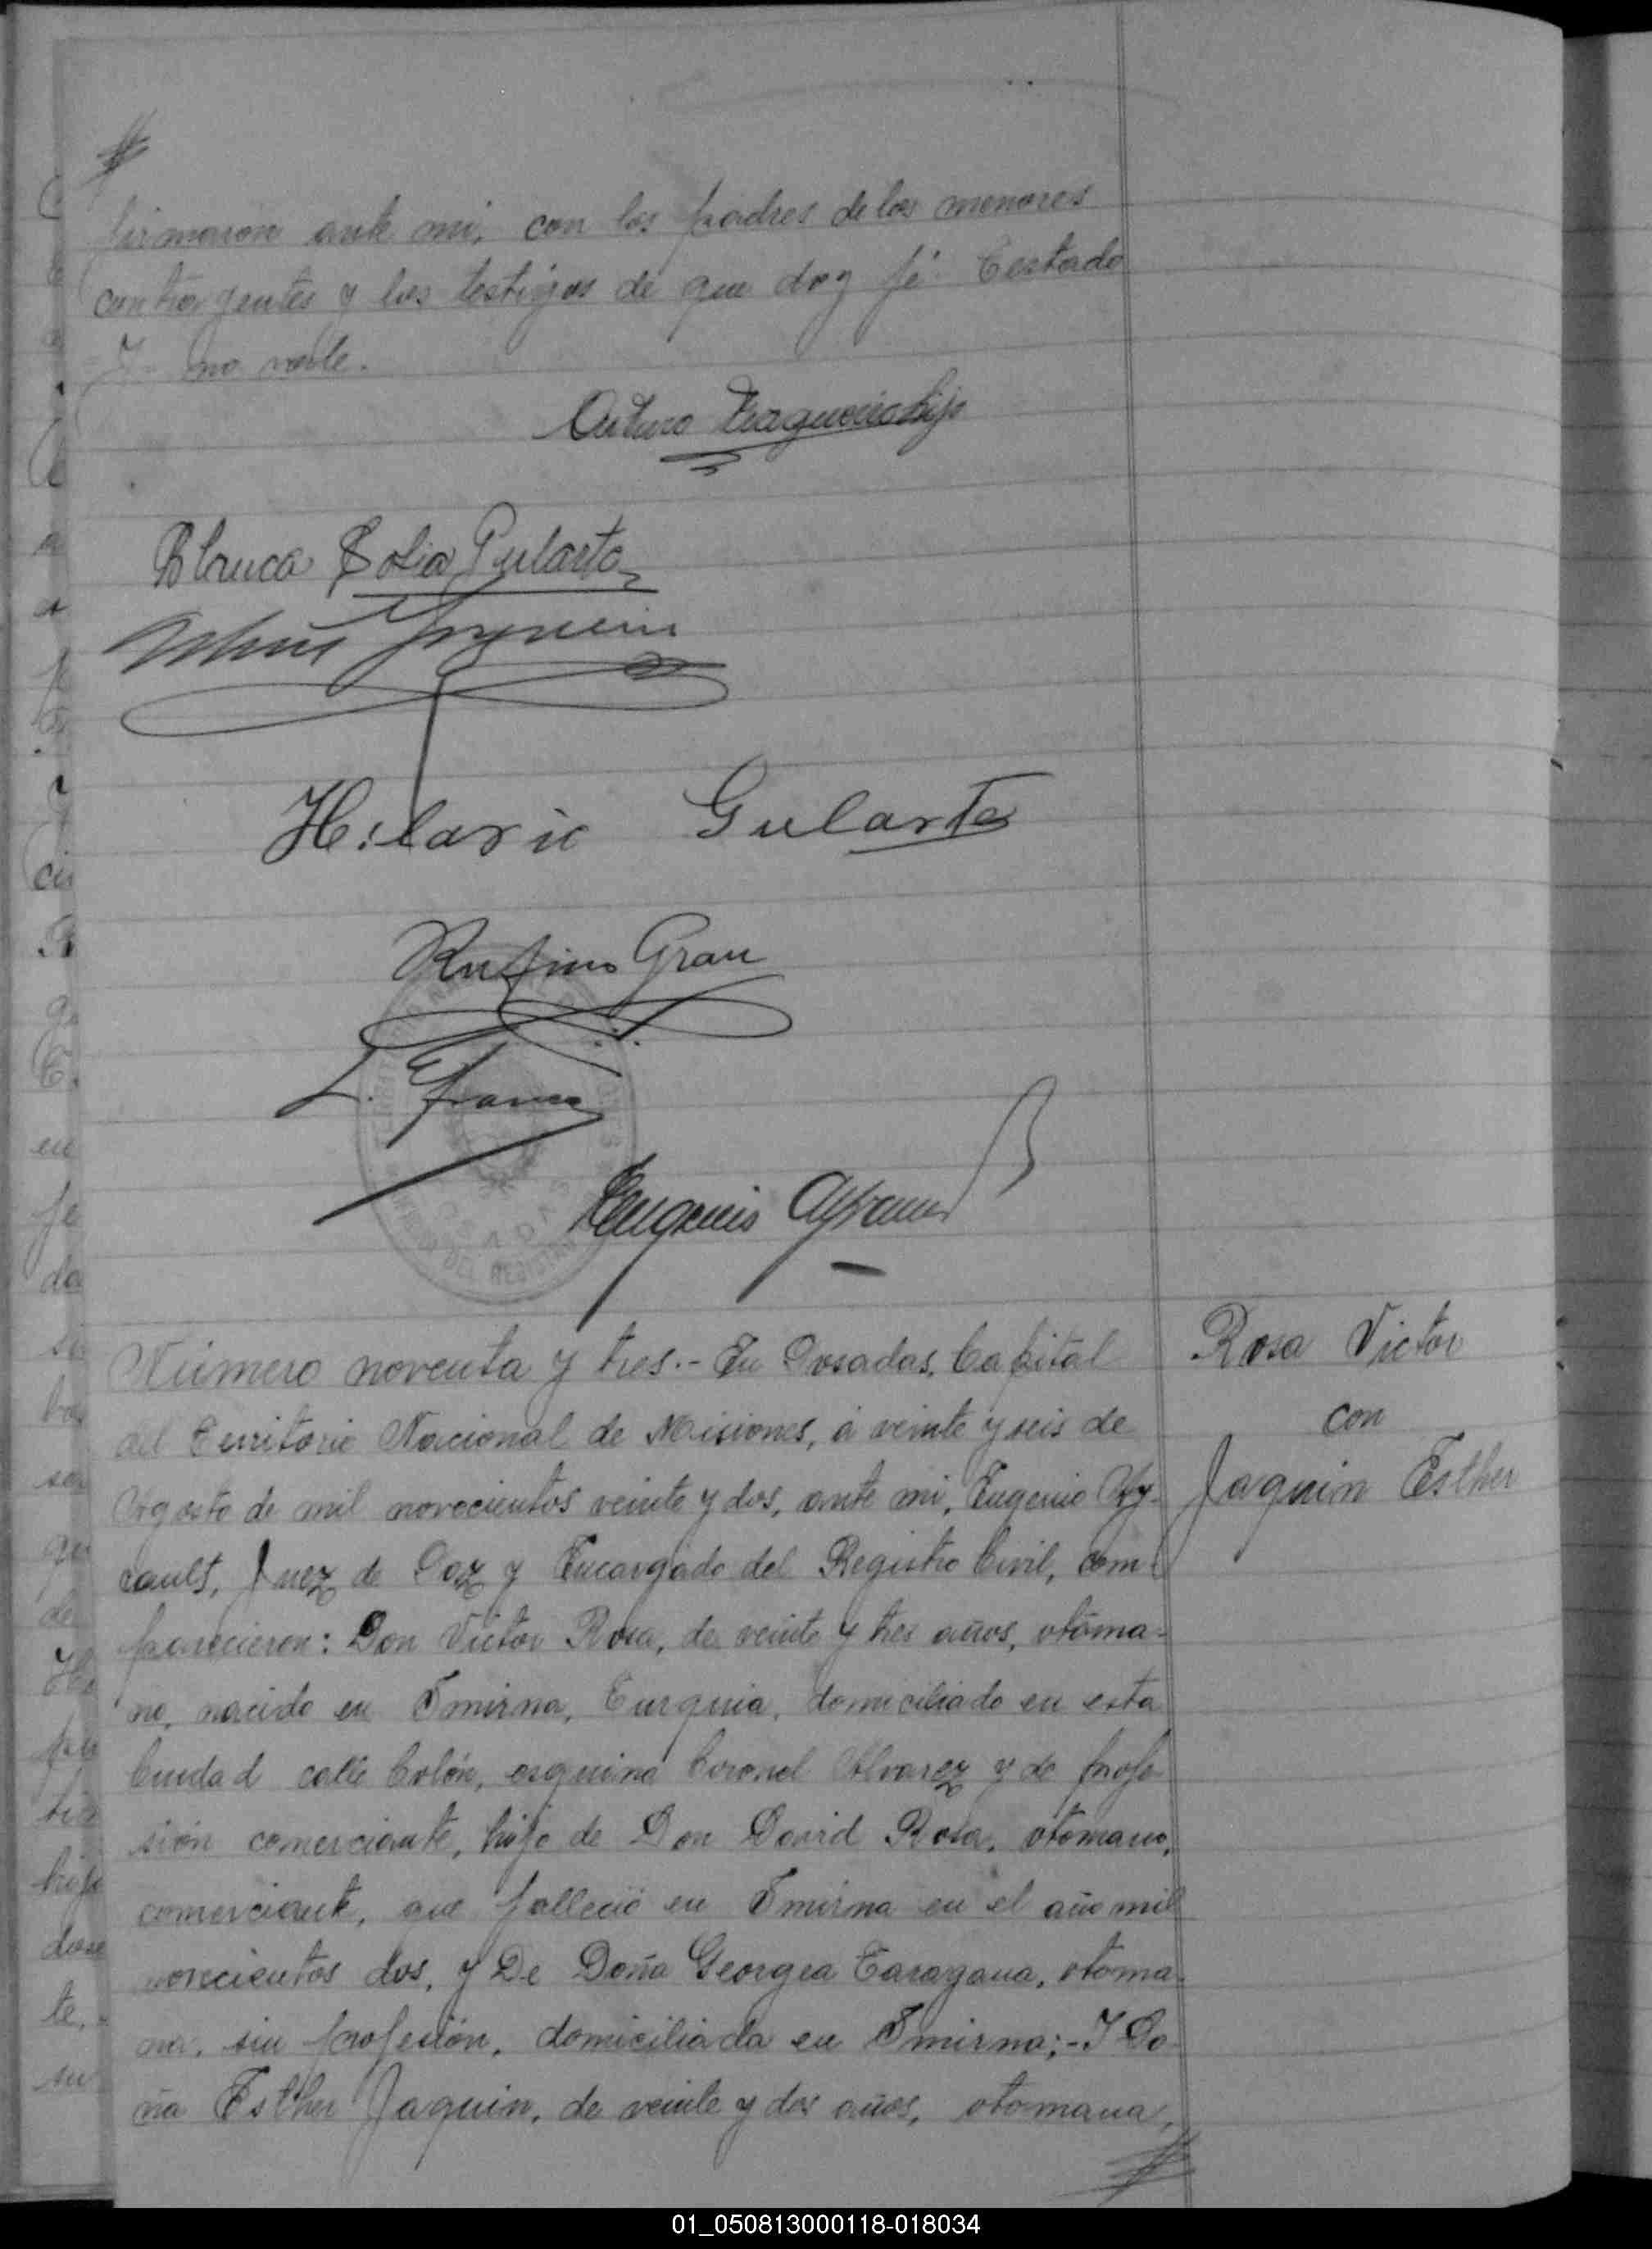 firmaron ante mi, con los padres de los menores
contrayentes y los testigos de que doy fé. Testado
Y- no vale.
Arturo hijo
Blanca Gularte
Hilario Gularte
Rufino Grau
L. Franco
Eugenio
Número noventa y tres.- En Posadas, Capital
del Territorio Nacional de Misiones, á veinte y seis de
Agosto de mil novecientos veinte y dos, ante mi, Eugenio Ay-
cault, Juez de Paz y Encargado del Registro Civil, com-
parecieron: Don Victor Rosa, de veinte y tres años, otoma-
no, nacido en Smirna, Turquia, domiciliado en esta
Ciudad calle Colón, esquina Coronel Alvarez y de profe
sión comerciante, hijo de Don David Rosa, otomano,
comerciante, que falleció en Smirna en el año mil
novecientos dos, y De Doña Georgea Taragana, otoma-
na, sin profesión, domiciliada en Smirna;- Y Do
ña Esther Jaquin, de veinte y dos años, otomana,
Rosa Victor
con
Jaquin Esther
01_050813000118-018034